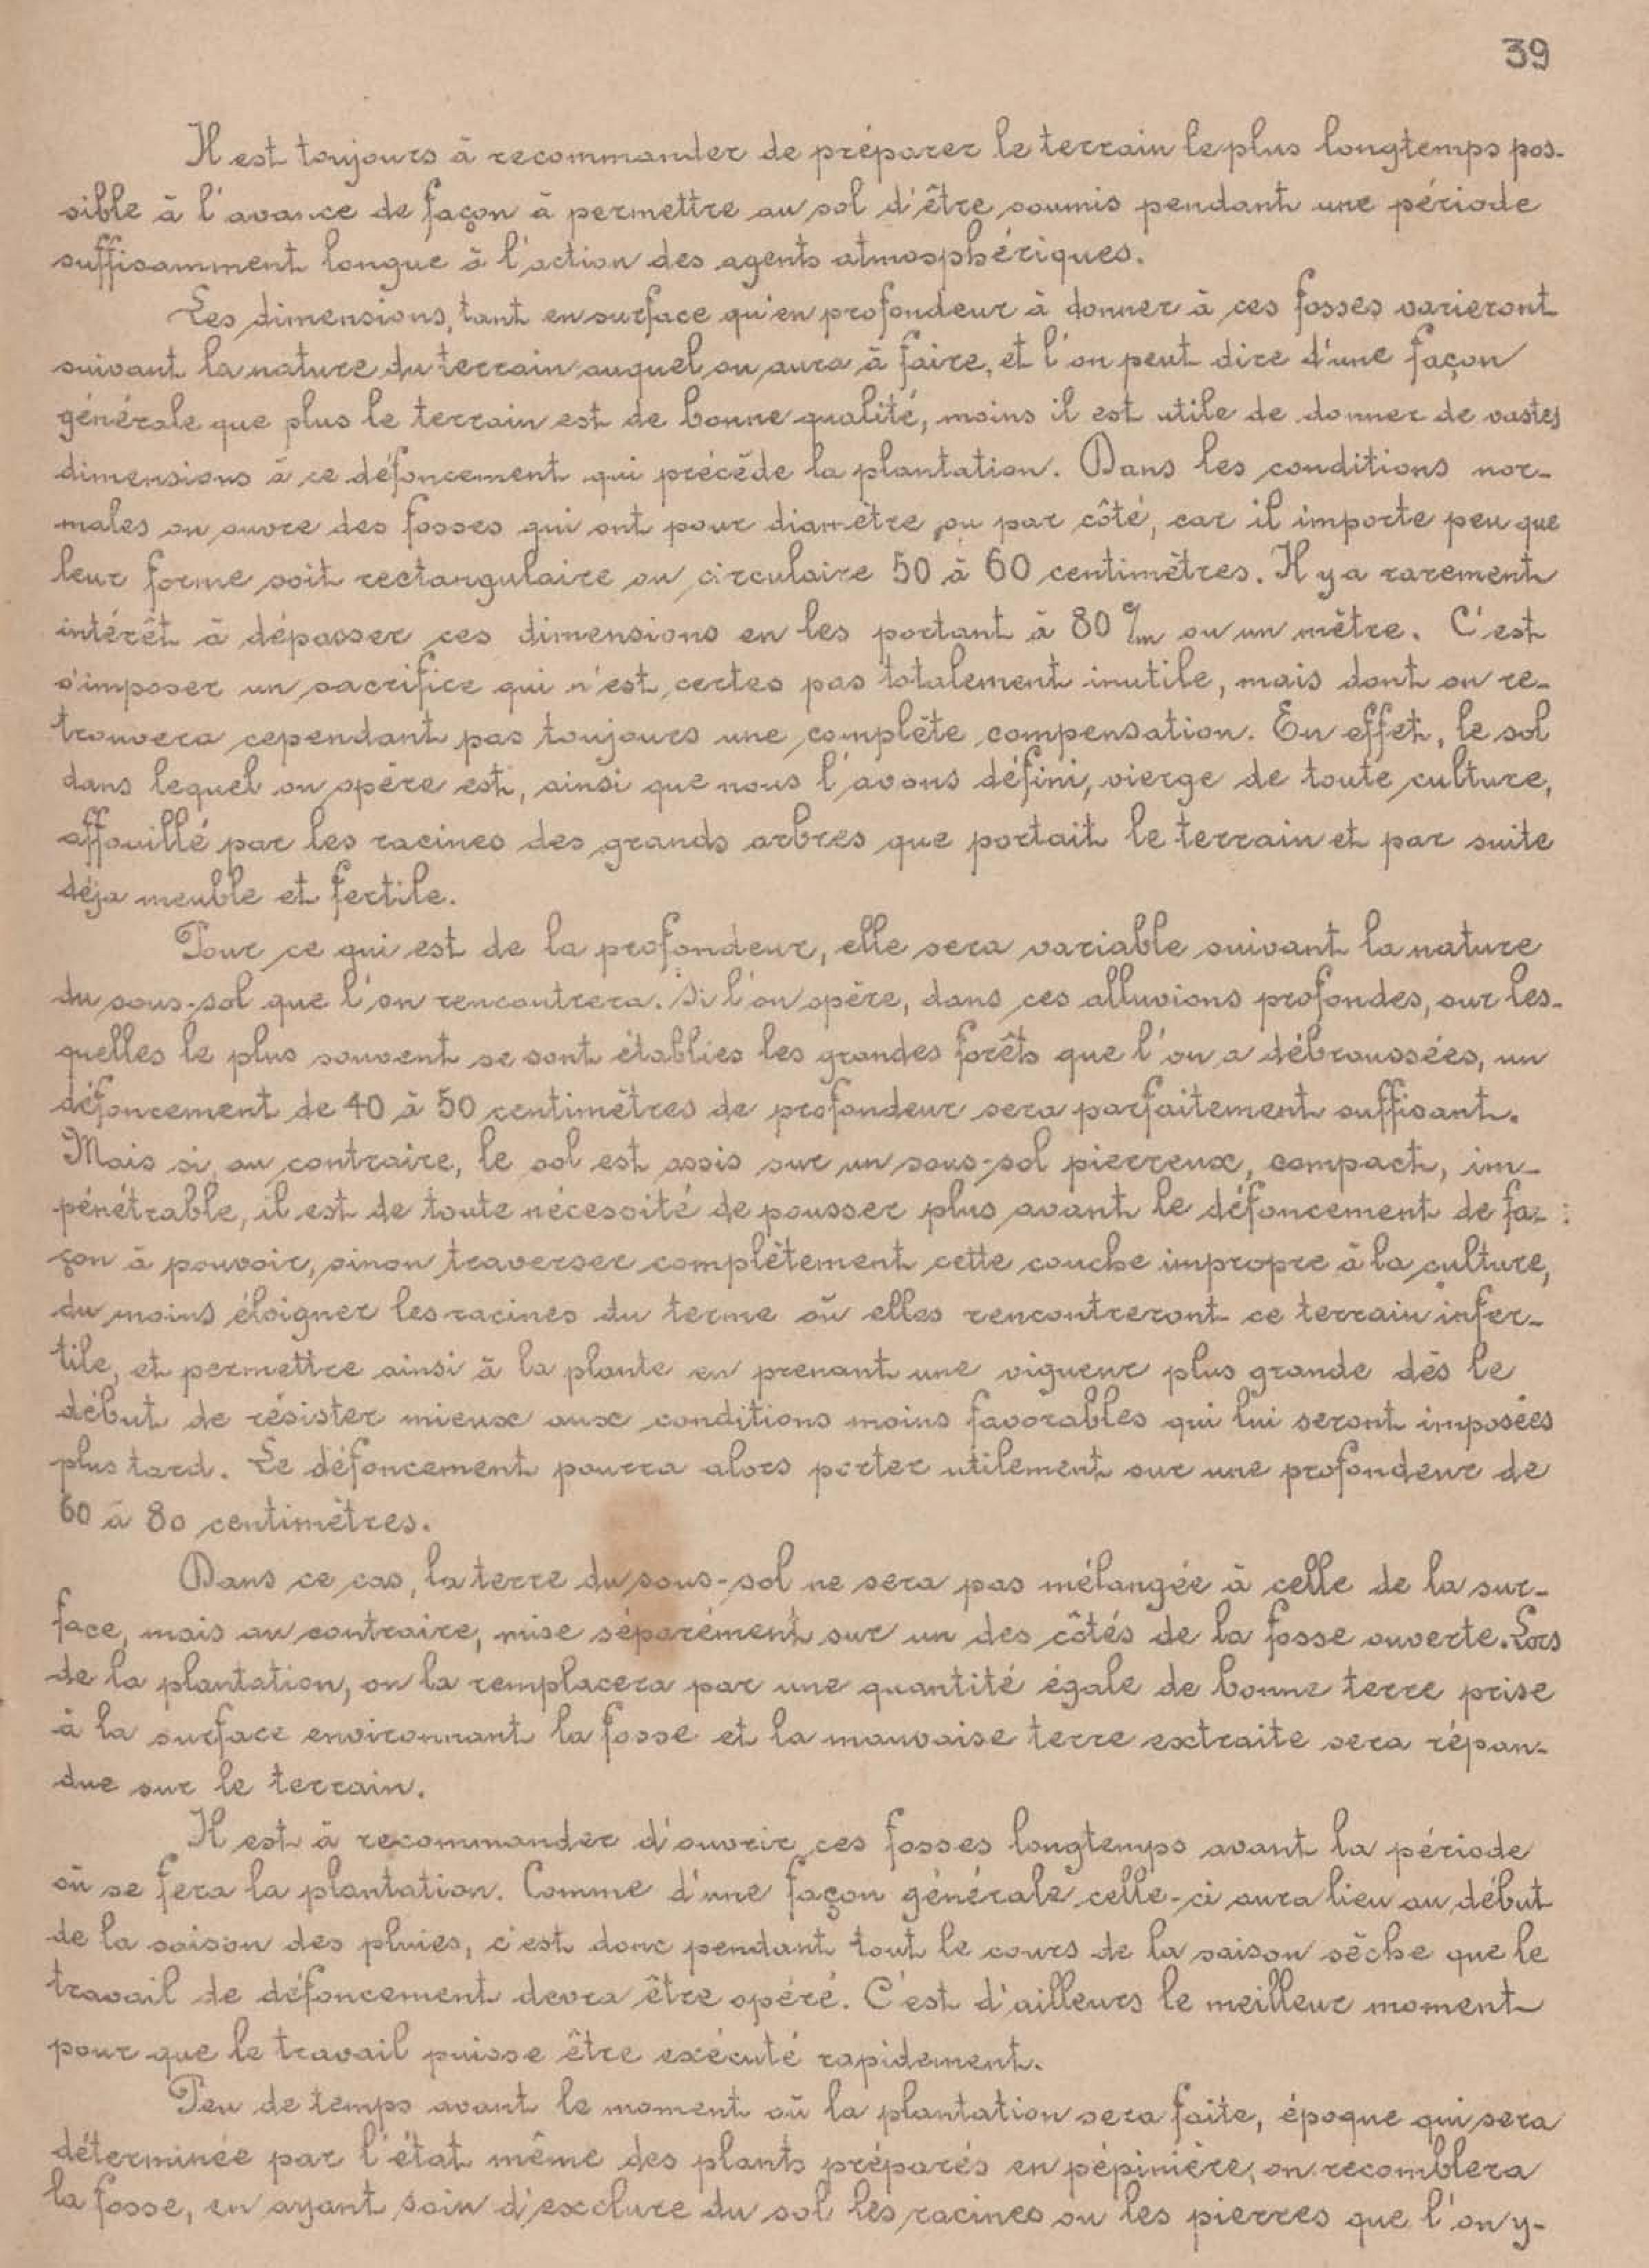 39
Il est toujours à recommander de préparer le terrain le plus longtemps pos-
sible à l'avance de façon à permettre au sol d'être soumis pendant une période
suffisamment longue à l'action des agents atmosphériques.
Les dimensions, tant en surface qu'en profondeur à donner à ces fosses varieront
suivant la nature du terrain auquel on aura à faire, et l'on peut dire d'une façon
générale que plus le terrain est de bonne qualité, moins il est utile de donner de vastes
dimensions à ce défoncement qui précède la plantation. Dans les conditions nor-
males on ouvre des fosses qui ont pour diamètre ou par côté, car il importe peu que
leur forme soit rectangulaire ou circulaire 50 à 60 centimètres. Il y a rarement
intérêt à dépasser ces dimensions en les portant à 80 c/m ou un mètre. C'est
s'imposer un sacrifice qui n'est certes pas totalement inutile, mais dont on re-
trouvera cependant pas toujours une complète compensation. En effet, le sol
dans lequel on opère est, ainsi que nous l'avons défini, vierge de toute culture,
affouillé par les racines des grands arbres que portait le terrain et par suite
déja meuble et fertile.
Pour ce qui est de la profondeur, elle sera variable suivant la nature
du sous-sol que l'on rencontrera. Si l'on opère, dans ces alluvions profondes, sur les-
quelles le plus souvent se sont établies les grandes forêts que l'on a débroussées, un
défoncement de 40 à 50 centimètres de profondeur sera parfaitement suffisant.
Mais si, au contraire, le sol est assis sur un sous-sol pierreux, compact, im-
pénétrable, il est de toute nécessité de pousser plus avant le défoncement de fa-
çon à pouvoir, sinon traverser complètement cette couche impropre à la culture,
du moins éloigner les racines du terme où elles rencontreront ce terrain infer-
tile, et permettre ainsi à la plante en prenant une vigueur plus grande dès le
début de résister mieux aux conditions moins favorables qui lui seront imposées
plus tard. Le défoncement pourra alors porter utilement sur une profondeur de
60 à 80 centimètres.
Dans ce cas, la terre du sous-sol ne sera pas mélangée à celle de la sur-
face, mais au contraire, mise séparément sur un des côtés de la fosse ouverte. Lors
de la plantation, on la remplacera par une quantité égale de bonne terre prise
à la surface environnant la fosse et la mauvaise terre extraite sera répan-
due sur le terrain.
Il est à recommander d'ouvrir ces fosses longtemps avant la période
où se fera la plantation. Comme d'une façon générale celle-ci aura lieu au début
de la saison des pluies, c'est donc pendant tout le cours de la saison sèche que le
travail de défoncement devra être opéré. C'est d'ailleurs le meilleur moment
pour que le travail puisse être exécuté rapidement.
Peu de temps avant le moment où la plantation sera faite, époque qui sera
déterminée par l'état même des plants préparés en pépinière, on recomblera
la fosse, en ayant soin d'exclure du sol les racines ou les pierres que l'on y-